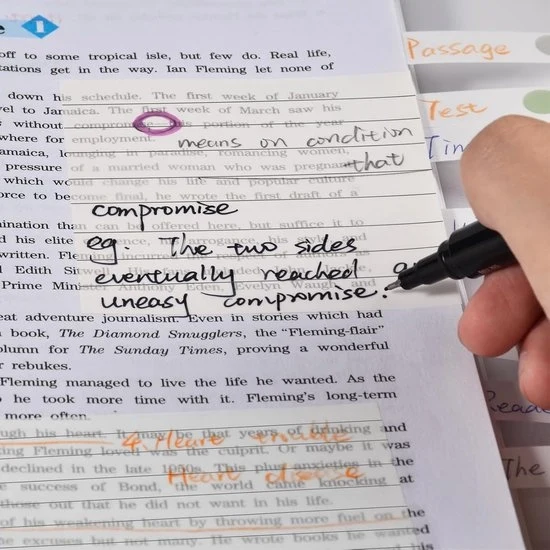 1
off to some tropical isle, but few do. Real life,
tations get in the way. Ian Fleming let none of
down his schedule. The first week of January
vel to Jamaica. The first week of March saw his
s without compromise this portion of the year
where for employment.
means on condition
that
amaica, lounging in paradise, romancing women,
pressure of a married woman who was pregnant
which would change his life and popular culture
orce to be come final, he wrote the first draft of a
compromise
eg. The two sides
eventually reached an
uneasy compromise.
mination than can be offered here, but suffice it to
d his elite arrogance, his
written. Fleming
d Edith Sitwell,
Prime Minister Anthony Eden, Evelyn Waugh, and
eat adventure journalism. Even in stories which had
book, The Diamond Smugglers, the “Fleming-flair”
olumn for The Sunday Times, proving a wonderful
r rebukes.
Fleming managed to live the life he wanted. As the
o he took more time with it. Fleming's long-term
more often.
ugh his heart. It maybe that years of drinking and
king Fleming loved was the culprit. Or maybe it was
declined in the late 1950s. This plus anxieties in the
e success of Bond, the world came knocking at
those out that he did not want in his life.
4. Heart
Heart disease
of his weakening heart by throwing more fuel on the
he excuses but not many. He wrote books he wanted
his
Passage
Test
The